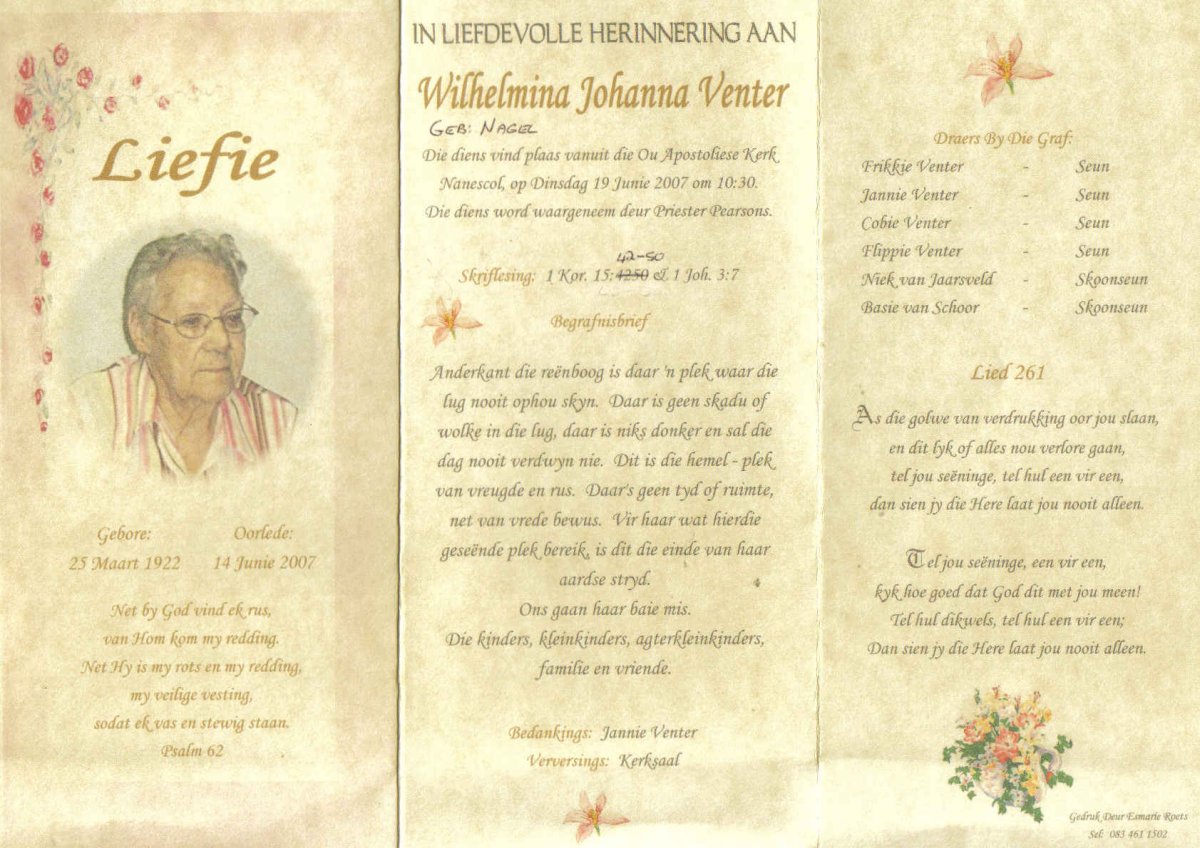 Liefie
Gebore: Oorlede:
25 Maart 1922 14 Junie 2007
Net by God vind ek rus,
van Hom kom my redding.
Net Hy is my rots en my redding,
my veilige vesting,
sodat ek vas en stewig staan.
Psalm 62
IN LIEFDEVOLLE HERINNERING AAN
Wilhelmina Johanna Venter
GEB: NAGEL
Die diens vind plaas vanuit die Ou Apostoliese Kerk
Nanescol, op Dinsdag 19 Junie 2007 om 10:30.
Die diens word waargeneem deur Priester Pearsons.
42-50
Skriflesing: 1 Kor. 15:4250 & 1 Joh. 3:7
Begrafnisbrief
Anderkant die reënboog is daar 'n plek waar die
lug nooit ophou skyn. Daar is geen skadu of
wolke in die lug, daar is niks donker en sal die
dag nooit verdwyn nie. Dit is die hemel - plek
van vreugde en rus. Daar's geen tyd of ruimte,
net van vrede bewus. Vir haar wat hierdie
geseënde plek bereik, is dit die einde van haar
aardse stryd.
Ons gaan haar baie mis.
Die kinders, kleinkinders, agterkleinkinders,
familie en vriende.
Bedankings: Jannie Venter
Verversings: Kerksaal
Draers By Die Graf:
Frikkie Venter - Seun
Jannie Venter - Seun
Cobie Venter - Seun
Flippie Venter - Seun
Niek van Jaarsveld - Skoonseun
Basie van Schoor - Skoonseun
Lied 261
As die golwe van verdrukking oor jou slaan,
en dit lyk of alles nou verlore gaan,
tel jou seëninge, tel hul een vir een,
dan sien jy die Here laat jou nooit alleen.
Tel jou seëninge, een vir een,
kyk hoe goed dat God dit met jou meen!
Tel hul dikwels, tel hul een vir een;
Dan sien jy die Here laat jou nooit alleen.
Gedruk Deur Esmarie Roets
Sel: 083 461 1502